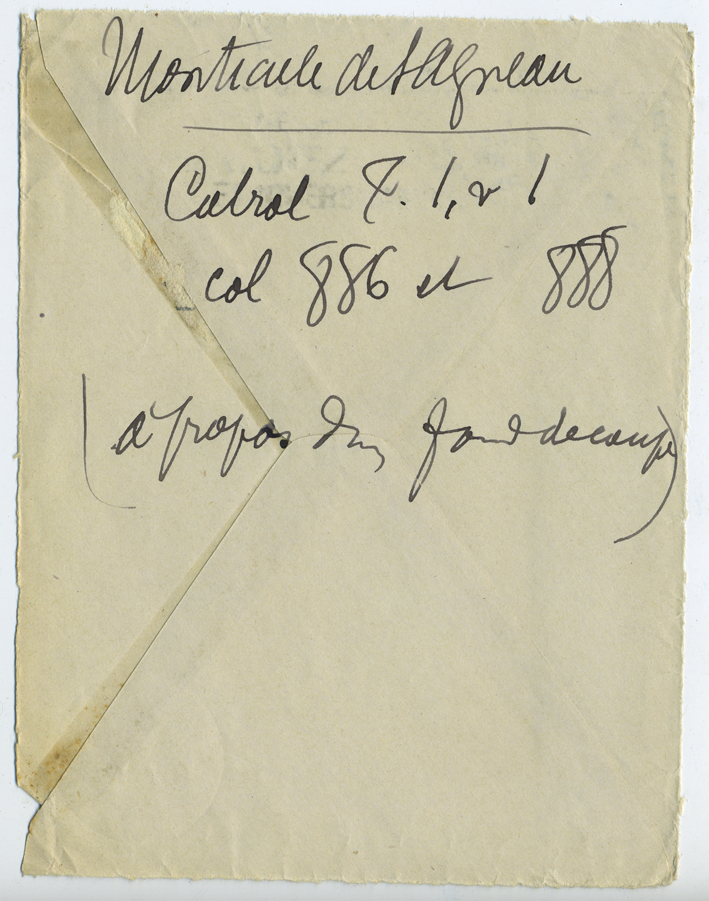 Monticule de l'Agneau
Cabrol T. 1, v 1
col 886 et 888
(à propos d'un fond de coupe)